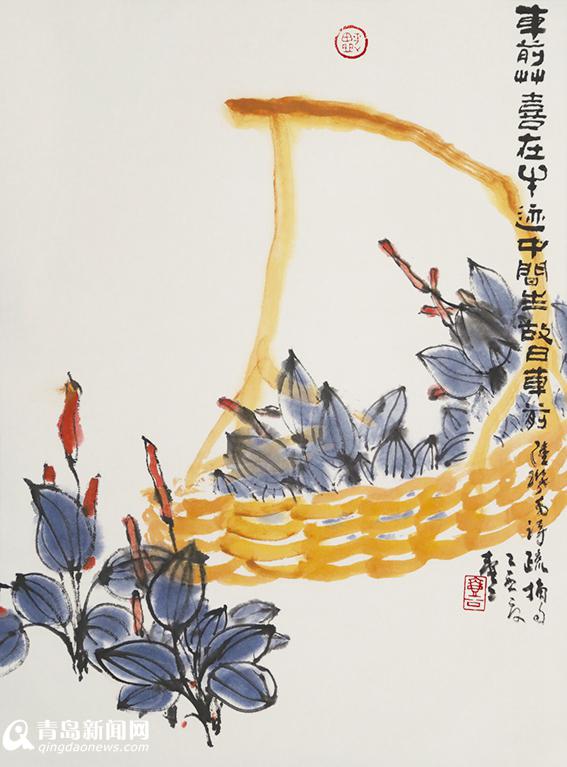 車前艸喜在牛迹中間生故曰車前
陸璣毛詩疏摘句
青岛新闻网
qingdaonews.com